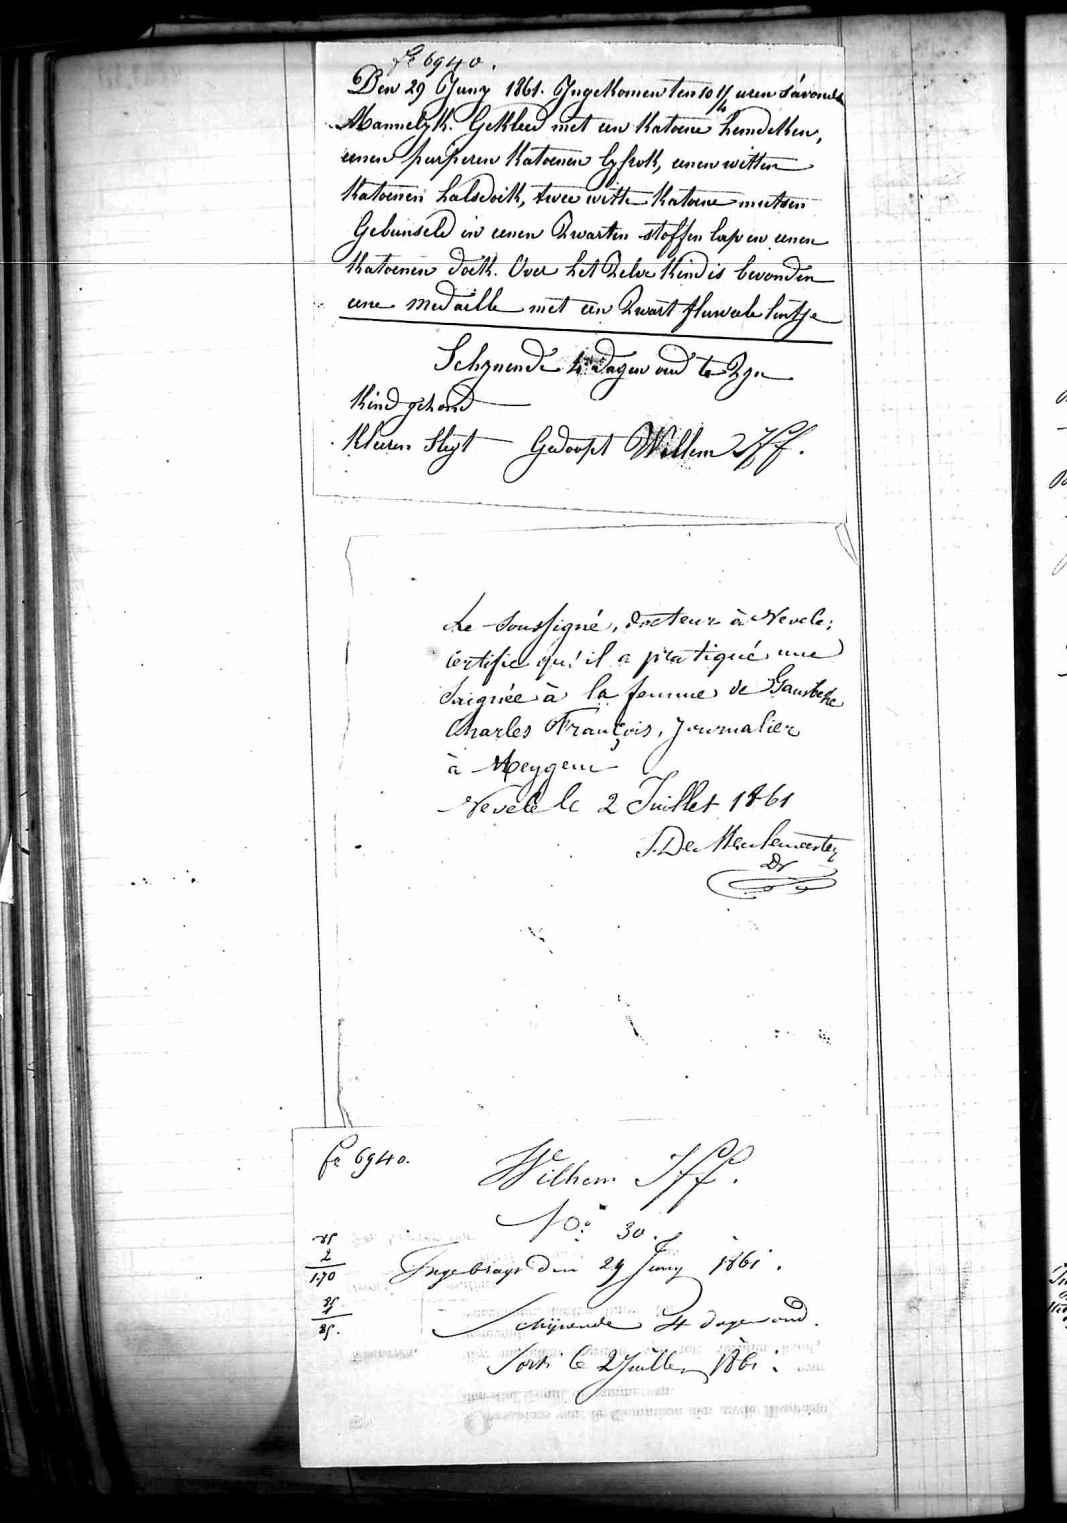 fe 6940.
Den 29 Juny 1861. Ingekomen ten 10 1/4 uren s'avonds
Mannelyk. Gekleed met een Katoene hemdeken,
eenen purperen Katoenen lyfrok, eenen witten
Katoenen halsdoek, twee witte Katoene mutsen
Gebunseld in eenen Zwarten stoffen lap en eenen
Katoenen doek. Over het Zelve Kind is bevonden
eene medaille met een Zwart fluweele lintje
Schynende 4 dagen oud te Zyn
Kind gezond
Kleeren Slegt Gedoopt Willem Iff.
Le Soussigné, docteur à Nevele;
Certifie qu'il a pratiqué une
Saignée à la femme de
Charles François, Journalier
à Meygem
Nevele le 2 Juillet 1861
De Meulemeester
Dr
fe 6940.
Wilhem Iff.
No: 30.
85
2
1.70
Ingebragt den 29 Juny 1861.
85.
Schijnende 4 dagen oud.
Sorti le 2 Juillet 1861.